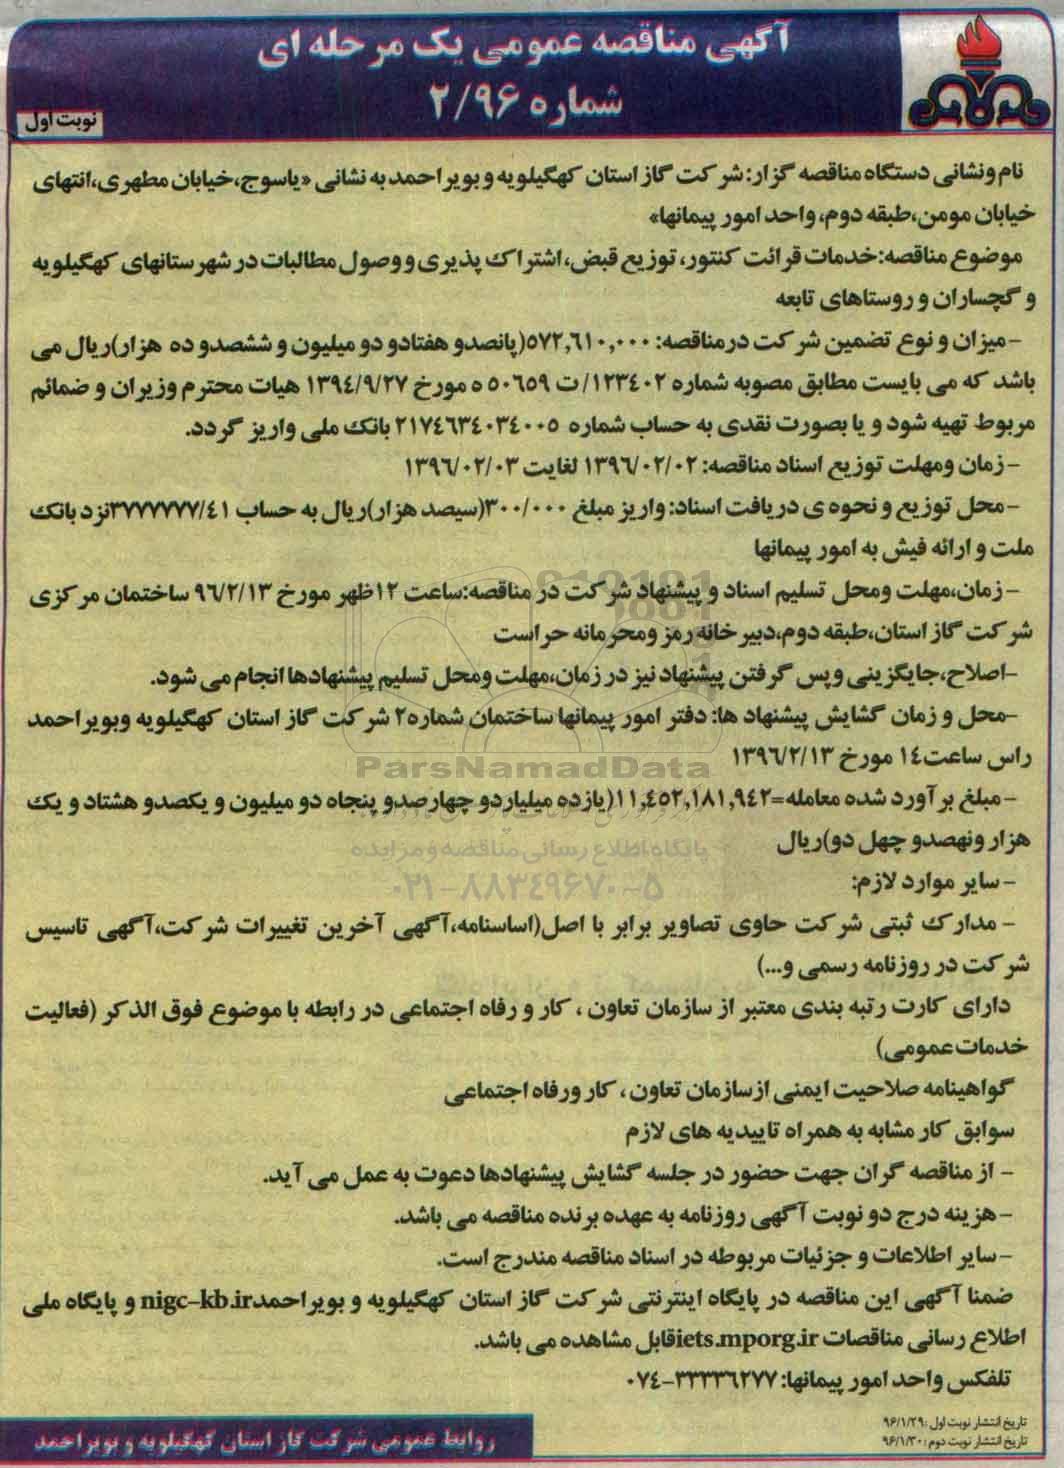 آگهی مناقصه عمومی یک مرحله ای
شماره ۲/۹۶
نوبت اول
نام ونشانی دستگاه مناقصه گزار: شرکت گاز استان کهگیلویه و بویراحمد به نشانی «یاسوج،خیابان مطهری،انتهای
خیابان مومن،طبقه دوم، واحد امور پیمانها»
موضوع مناقصه:خدمات قرائت کنتور، توزیع قبض،اشتراک پذیری و وصول مطالبات در شهرستانهای کهگیلویه
و گچساران و روستاهای تابعه
- میزان و نوع تضمین شرکت درمناقصه: ۵۷۲,۶۱۰,۰۰۰(پانصدو هفتادو دو میلیون و ششصدو ده هزار)ریال می
باشد که می بایست مطابق مصوبه شماره ۱۲۳۴۰۲/ ت ۵۰۶۵۹ ه مورخ ۱۳۹۴/۹/۲۷ هیات محترم وزیران و ضمائم
مربوط تهیه شود و یا بصورت نقدی به حساب شماره ۲۱۷۴۶۳۴۰۳۴۰۰۵ بانک ملی واریز گردد.
- زمان ومهلت توزیع اسناد مناقصه: ۱۳۹۶/۰۲/۰۲ لغایت ۱۳۹۶/۰۲/۰۳
- محل توزیع و نحوه ی دریافت اسناد: واریز مبلغ ۳۰۰/۰۰۰(سیصد هزار)ریال به حساب ۳۷۷۷۷۷۷/۴۱نزد بانک
ملت و ارائه فیش به امور پیمانها
- زمان،مهلت ومحل تسلیم اسناد و پیشنهاد شرکت در مناقصه:ساعت ۱۲ظهر مورخ ۹۶/۲/۱۳ ساختمان مرکزی
شرکت گاز استان،طبقه دوم،دبیرخانه رمز ومحرمانه حراست
-اصلاح،جایگزینی وپس گرفتن پیشنهاد نیز در زمان،مهلت ومحل تسلیم پیشنهادها انجام می شود.
-محل و زمان گشایش پیشنهاد ها: دفتر امور پیمانها ساختمان شماره۲ شرکت گاز استان کهگیلویه وبویراحمد
راس ساعت۱۴ مورخ ۱۳۹۶/۲/۱۳
ParsNamadData
- مبلغ برآورد شده معامله=۱۱,۴۵۲,۱۸۱,۹۴۲(یازده میلیاردو چهارصدو پنجاه دو میلیون و یکصدو هشتاد و یک
هزار ونهصدو چهل دو)ریال
پایگاه اطلاع رسانی مناقصه و مزایده
- سایر موارد لازم:
۰۲۱-۸۸۳۴۹۶۷۰-۵
- مدارک ثبتی شرکت حاوی تصاویر برابر با اصل(اساسنامه،آگهی آخرین تغییرات شرکت،آگهی تاسیس
شرکت در روزنامه رسمی و...)
دارای کارت رتبه بندی معتبر از سازمان تعاون ، کار و رفاه اجتماعی در رابطه با موضوع فوق الذکر (فعالیت
خدمات عمومی)
گواهینامه صلاحیت ایمنی ازسازمان تعاون ، کار ورفاه اجتماعی
سوابق کار مشابه به همراه تاییدیه های لازم
- از مناقصه گران جهت حضور در جلسه گشایش پیشنهادها دعوت به عمل می آید.
- هزینه درج دو نوبت آگهی روزنامه به عهده برنده مناقصه می باشد.
- سایر اطلاعات و جزئیات مربوطه در اسناد مناقصه مندرج است.
ضمنا آگهی این مناقصه در پایگاه اینترنتی شرکت گاز استان کهگیلویه و بویراحمدnigc-kb.ir و پایگاه ملی
اطلاع رسانی مناقصات iets.mporg.irقابل مشاهده می باشد.
تلفکس واحد امور پیمانها: ۳۳۳۳۶۲۷۷-۰۷۴
تاریخ انتشار نوبت اول :۹۶/۱/۲۹
تاریخ انتشار نوبت دوم :۹۶/۱/۳۰
روابط عمومی شرکت گاز استان کهگیلویه و بویراحمد